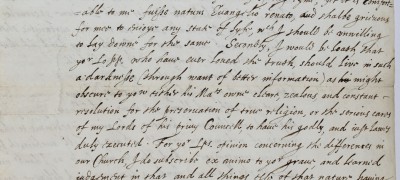 zable to me fuisse natum Evangelio renato, and shalbe grievous
for mee to enjoye any state of lyfe, wch I should be unwilling
to lay downe for the same. Secondly, I would be loath that
yor Lopps, who have ever loved the trueth, should live in such
a darknesse through want of better information, as might
obscure to yow either his Maties owne cleare, zealous and constant
resolution for the preservation of true religion, or the serious cares
of my Lords of his privy Councell, to have his godly, and just lawes
duly executed. For yor Lps opinion concerning the differences in
our Church, I do subscribe ex animo to yor grave, and learned
judgement in that, and all things els of that nature having